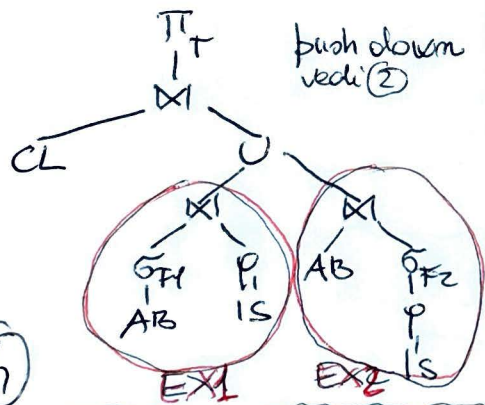 π T
push down
vedi ②
⋈
CL
∪
⋈ ⋈
σ F1 ρ AB σ F2
AB IS ρ
IS
EX1 EX2